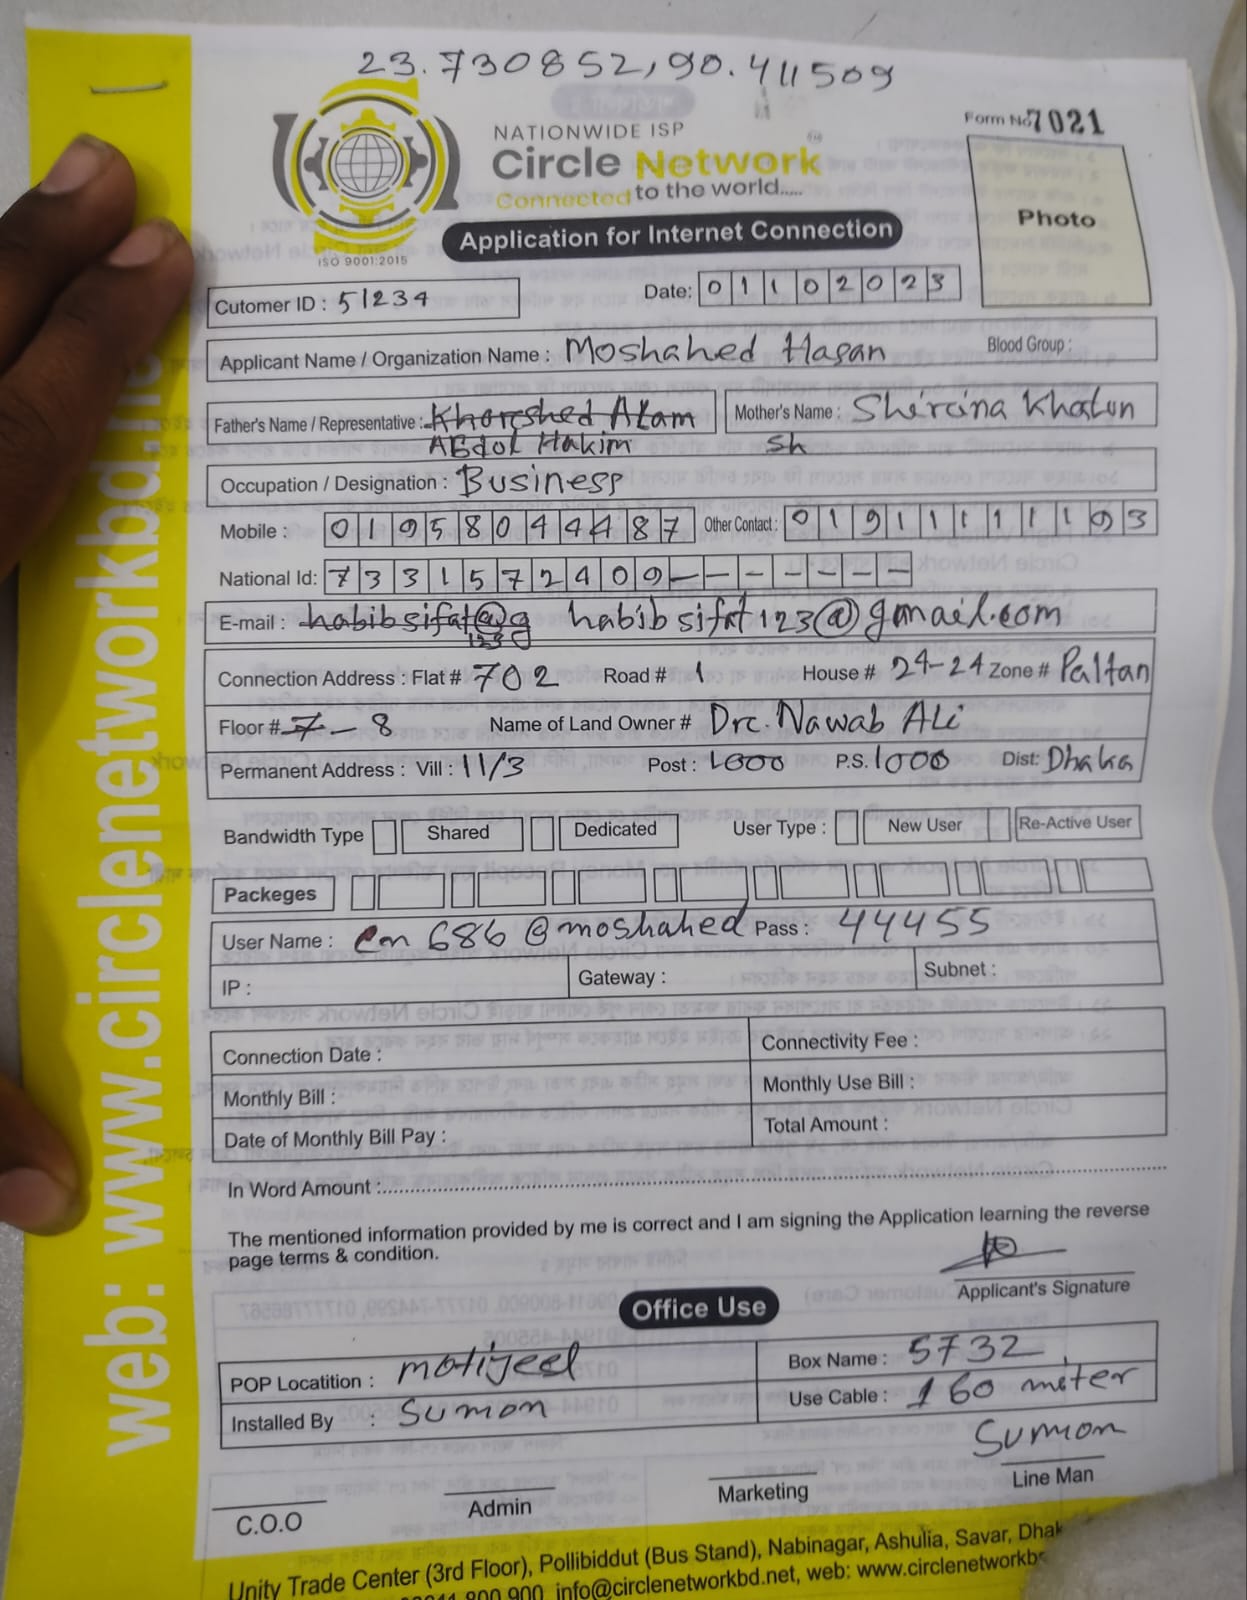 23.730852,90.411509
NATIONWIDE ISP
Circle Network
Connected to the world.....
ISO 9001:2015
Form No 7021
Photo
Application for Internet Connection
Cutomer ID : 51234 Date: 01102023
Applicant Name / Organization Name : Moshahed Hasan Blood Group :
Father's Name / Representative : Khorshed Alam Mother's Name : Shircina Khatun
Abdol Hakim Sh
Occupation / Designation : Business
Mobile : 01958044487 Other Contact : 01911111193
National Id: 7331572409-------
E-mail : habibsifat@g habibsifat123@gmail.com
123
Connection Address : Flat # 702 Road # 1 House # 24-24 Zone # Paltan
Floor # 7- 8 Name of Land Owner # Drc. Nawab Ali
Permanent Address : Vill : 11/3 Post : 1000 P.S. 1000 Dist: Dhaka
Bandwidth Type Shared Dedicated User Type : New User Re-Active User
Packeges
User Name : cn 686 @moshahed Pass : 44455
IP : Gateway : Subnet :
Connection Date : Connectivity Fee :
Monthly Bill : Monthly Use Bill :
Date of Monthly Bill Pay : Total Amount :
In Word Amount :
The mentioned information provided by me is correct and I am signing the Application learning the reverse
page terms & condition.
Applicant's Signature
Office Use
POP Locatition : motijeel Box Name : 5732
Installed By : Sumon Use Cable : 160 meter
Sumon
C.O.O Admin Marketing Line Man
Unity Trade Center (3rd Floor), Pollibiddut (Bus Stand), Nabinagar, Ashulia, Savar, Dhak
800 900, info@circlenetworkbd.net, web: www.circlenetworkb
web: www.circlenetworkbd.ne